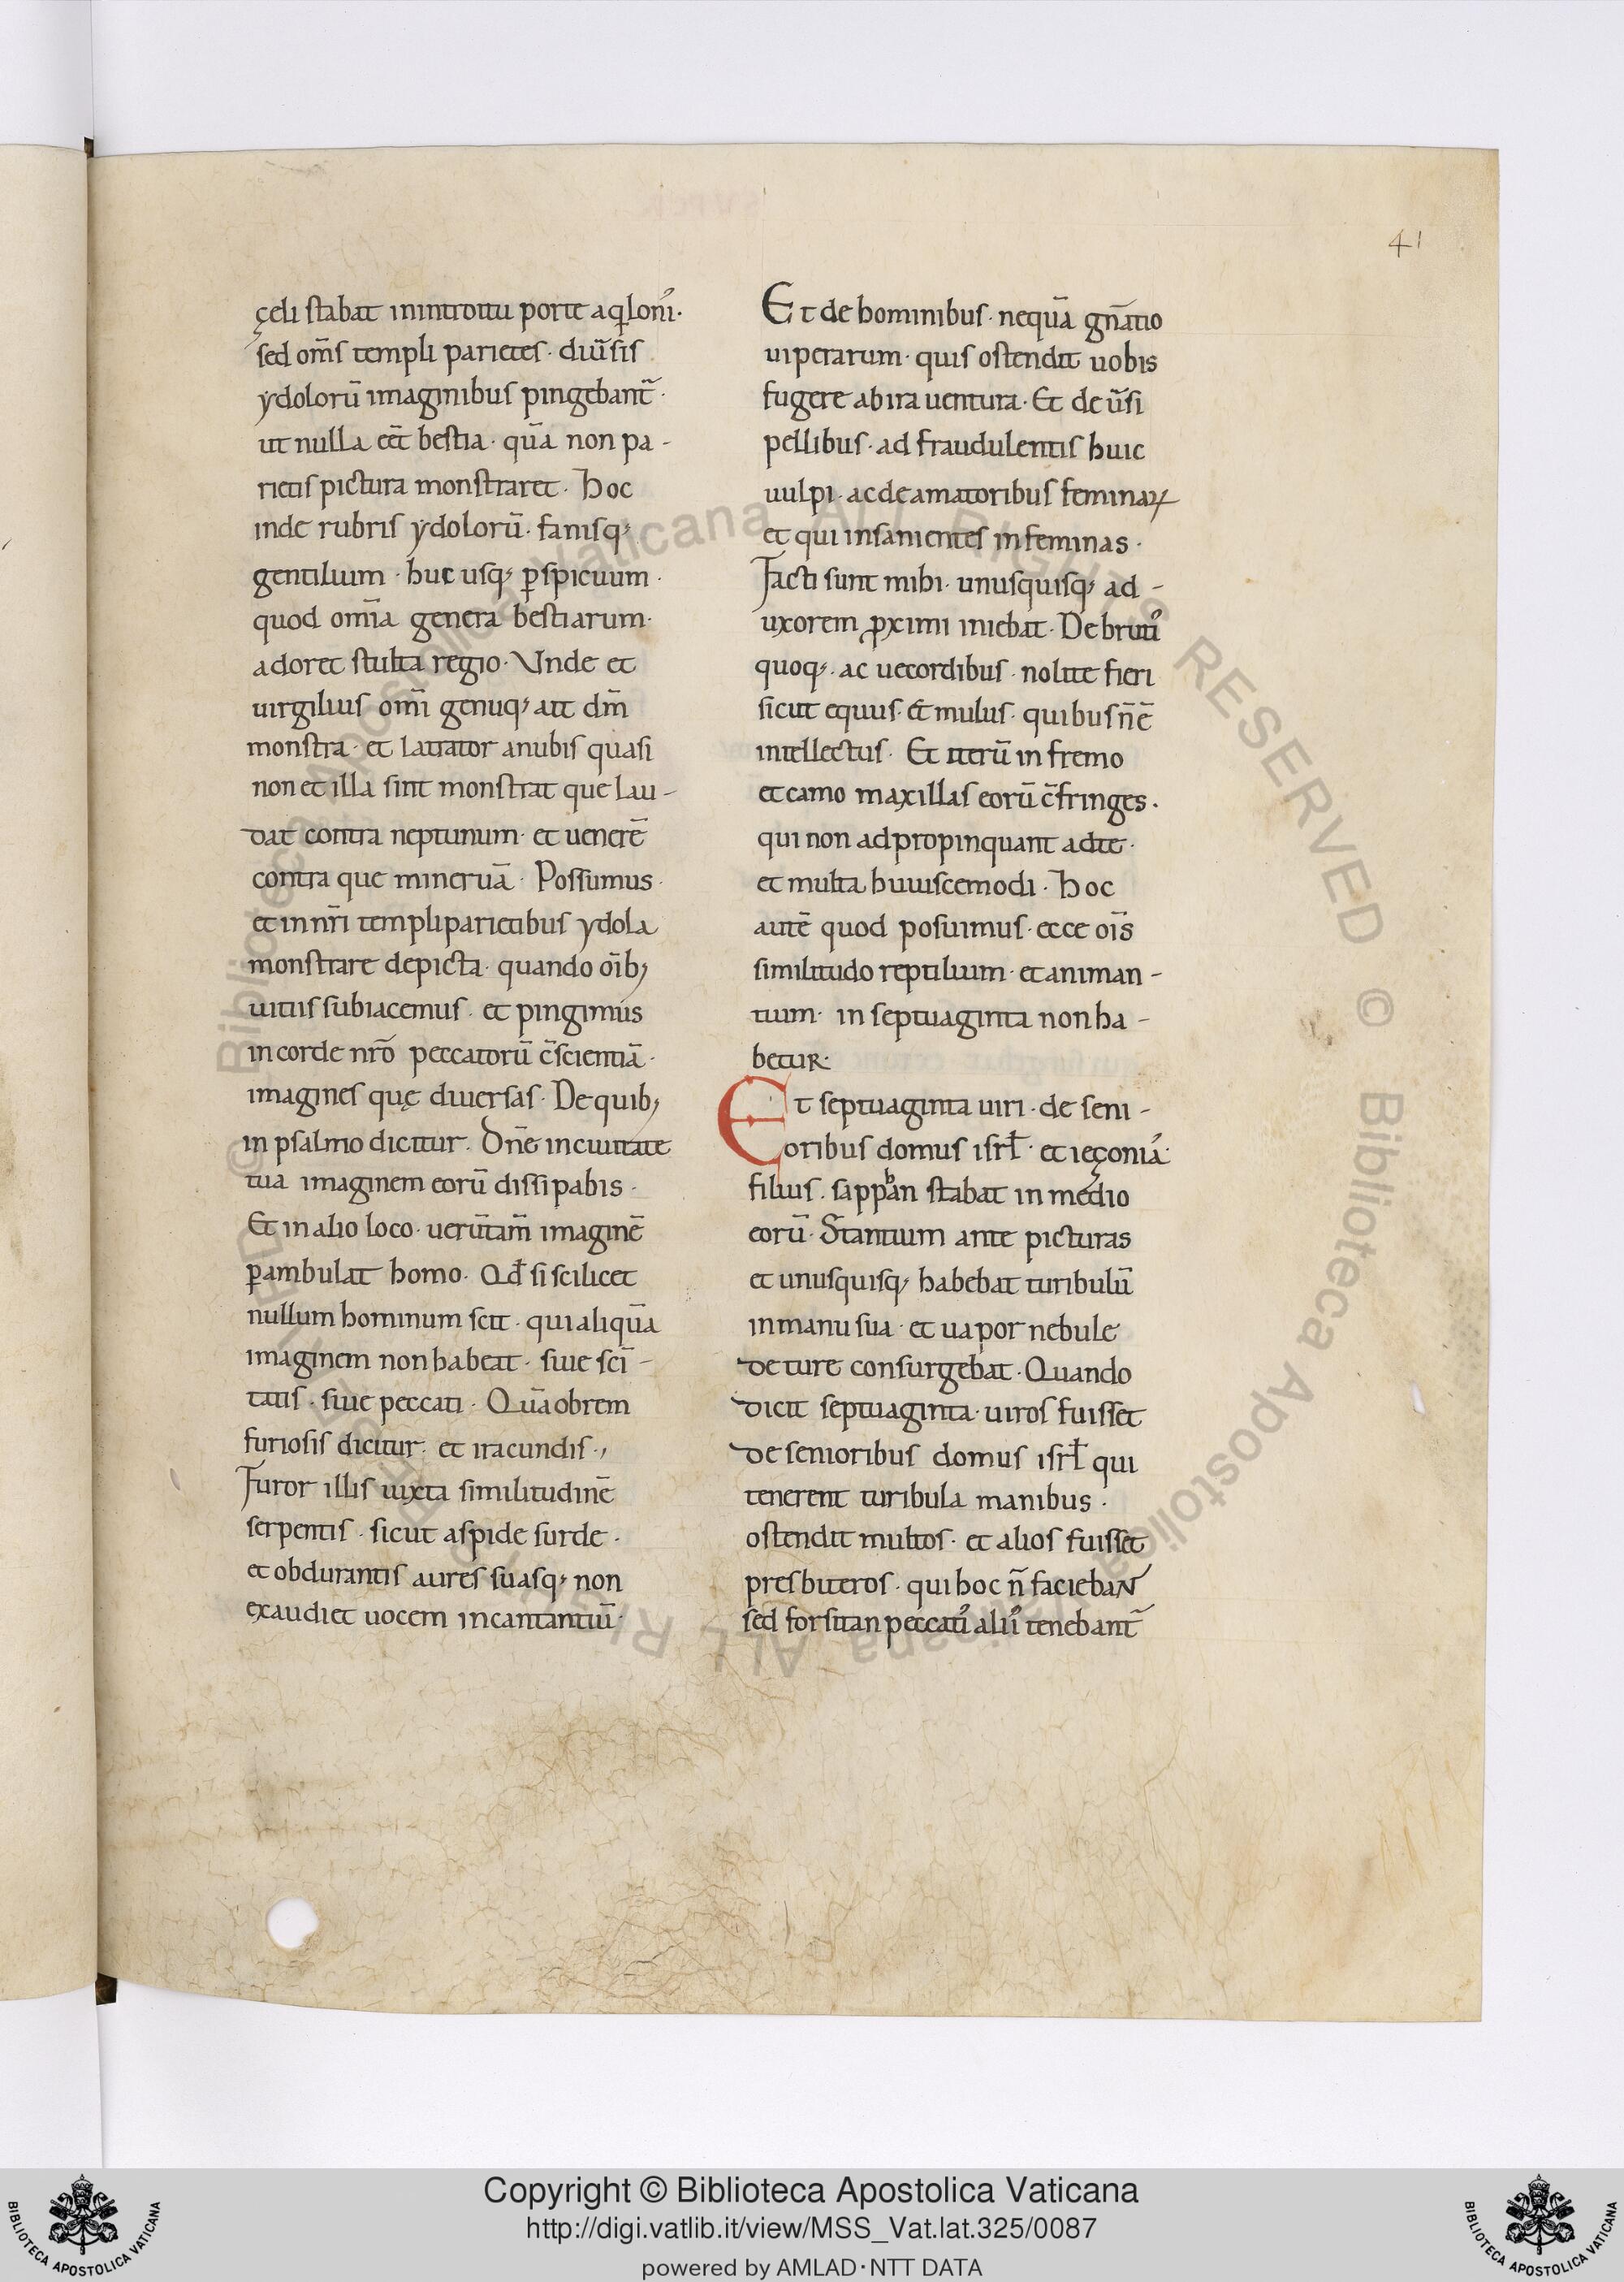 41
çeli stabat in introitu porte aq̇loni᷒·
sed om̄s templi parietes · diūsis
ydolorū imaginibus pingebant᷑ ·
ut nulla eēt bestia · quā non pa-
rietis pictura monstraret · Hoc
inde rubris ydolorū · fanisq;
gentilium · huc usq; ꝑspicuum ·
quod om̄ia genera bestiarum ·
adoret stulta regio · Vnde et
uirgilius om̄i genuq; ait dm̄
monstra · et latrator anubis quasi
non et illa sint monstrat que lau-
dat contra neptunum · et uenerē
contra que mineruā · Possumus ·
et in nr̄i templi parietibus ydola
monstrare depicta · quando oīb;
uitiis subiacemus · et pingimus
in corde nrō peccatorū c̄scientiā ·
imagines quę diuersas · De quib;
in psalmo dicitur · Dn̄e in ciuitate
tua imaginem eorū dissipabis ·
Et in alio loco · uerūtam̄ imaginē
ꝑambulat homo · Qđ si scilicet
nullum hominum scit · qui aliquā
imaginem non habeat · siue scī-
tatis · siue peccati · Quāobrem
furiosis dicitur · et iracundis ·,
Furor illis iuxta similitudinē
serpentis · sicut aspide surde ·
et obdurantis aures suasq; non
exaudiet uocem incantantiū ·
Et de hominibus · nequā gn̄atio
uiperarum · quis ostendit uobis
fugere ab ira uentura · Et de ūsi
pellibus · ad fraudulentis huic
uulpi · ac de amatoribus feminaꝝ
et qui insanientes in feminas ·
Facti sunt mihi · unusquisq; ad-
uxorem ꝓximi iniebat · De bruti᷒
quoq; · ac uecordibus · nolite fieri
sicut equus · & mulus · quibus n̄ ē
intellectus · Et iterū in fremo
et camo maxillas eorū c̄fringes ·
qui non adpropinquant ad te ·
et multa huiuscemodi · Hoc
autē quod posuimus · ecce oīs
similitudo reptilium · et animan-
tium · in septuaginta non ha-
betur ·
Et septuaginta uiri · de seni-
oribus domus isrł · et ieçonia᷒ ·
filius · sapphan stabat in medio
eorū · Stantium ante picturas
et unusquisq; habebat turibulū
in manu sua · et uapor nebule
de ture consurgebat · Quando
dicit septuaginta · uiros fuisset
de senioribus domus isrł qui
tenerent turibula manibus ·
ostendit multos · et alios fuisset
presbiteros · qui hoc n̄ faciebant
sed forsitan peccati᷒ alii᷒ tenebant᷑
Copyright © Biblioteca Apostolica Vaticana
http://digi.vatlib.it/view/MSS_Vat.lat.325/0087
powered by AMLAD·NTT DATA
BIBLIOTECA APOSTOLICA VATICANA
BIBLIOTECA APOSTOLICA VATICANA
© Biblioteca Apostolica Vaticana ALL RIGHTS RESERVED © Biblioteca Apostolica Vaticana ALL RIGHTS RESERVED